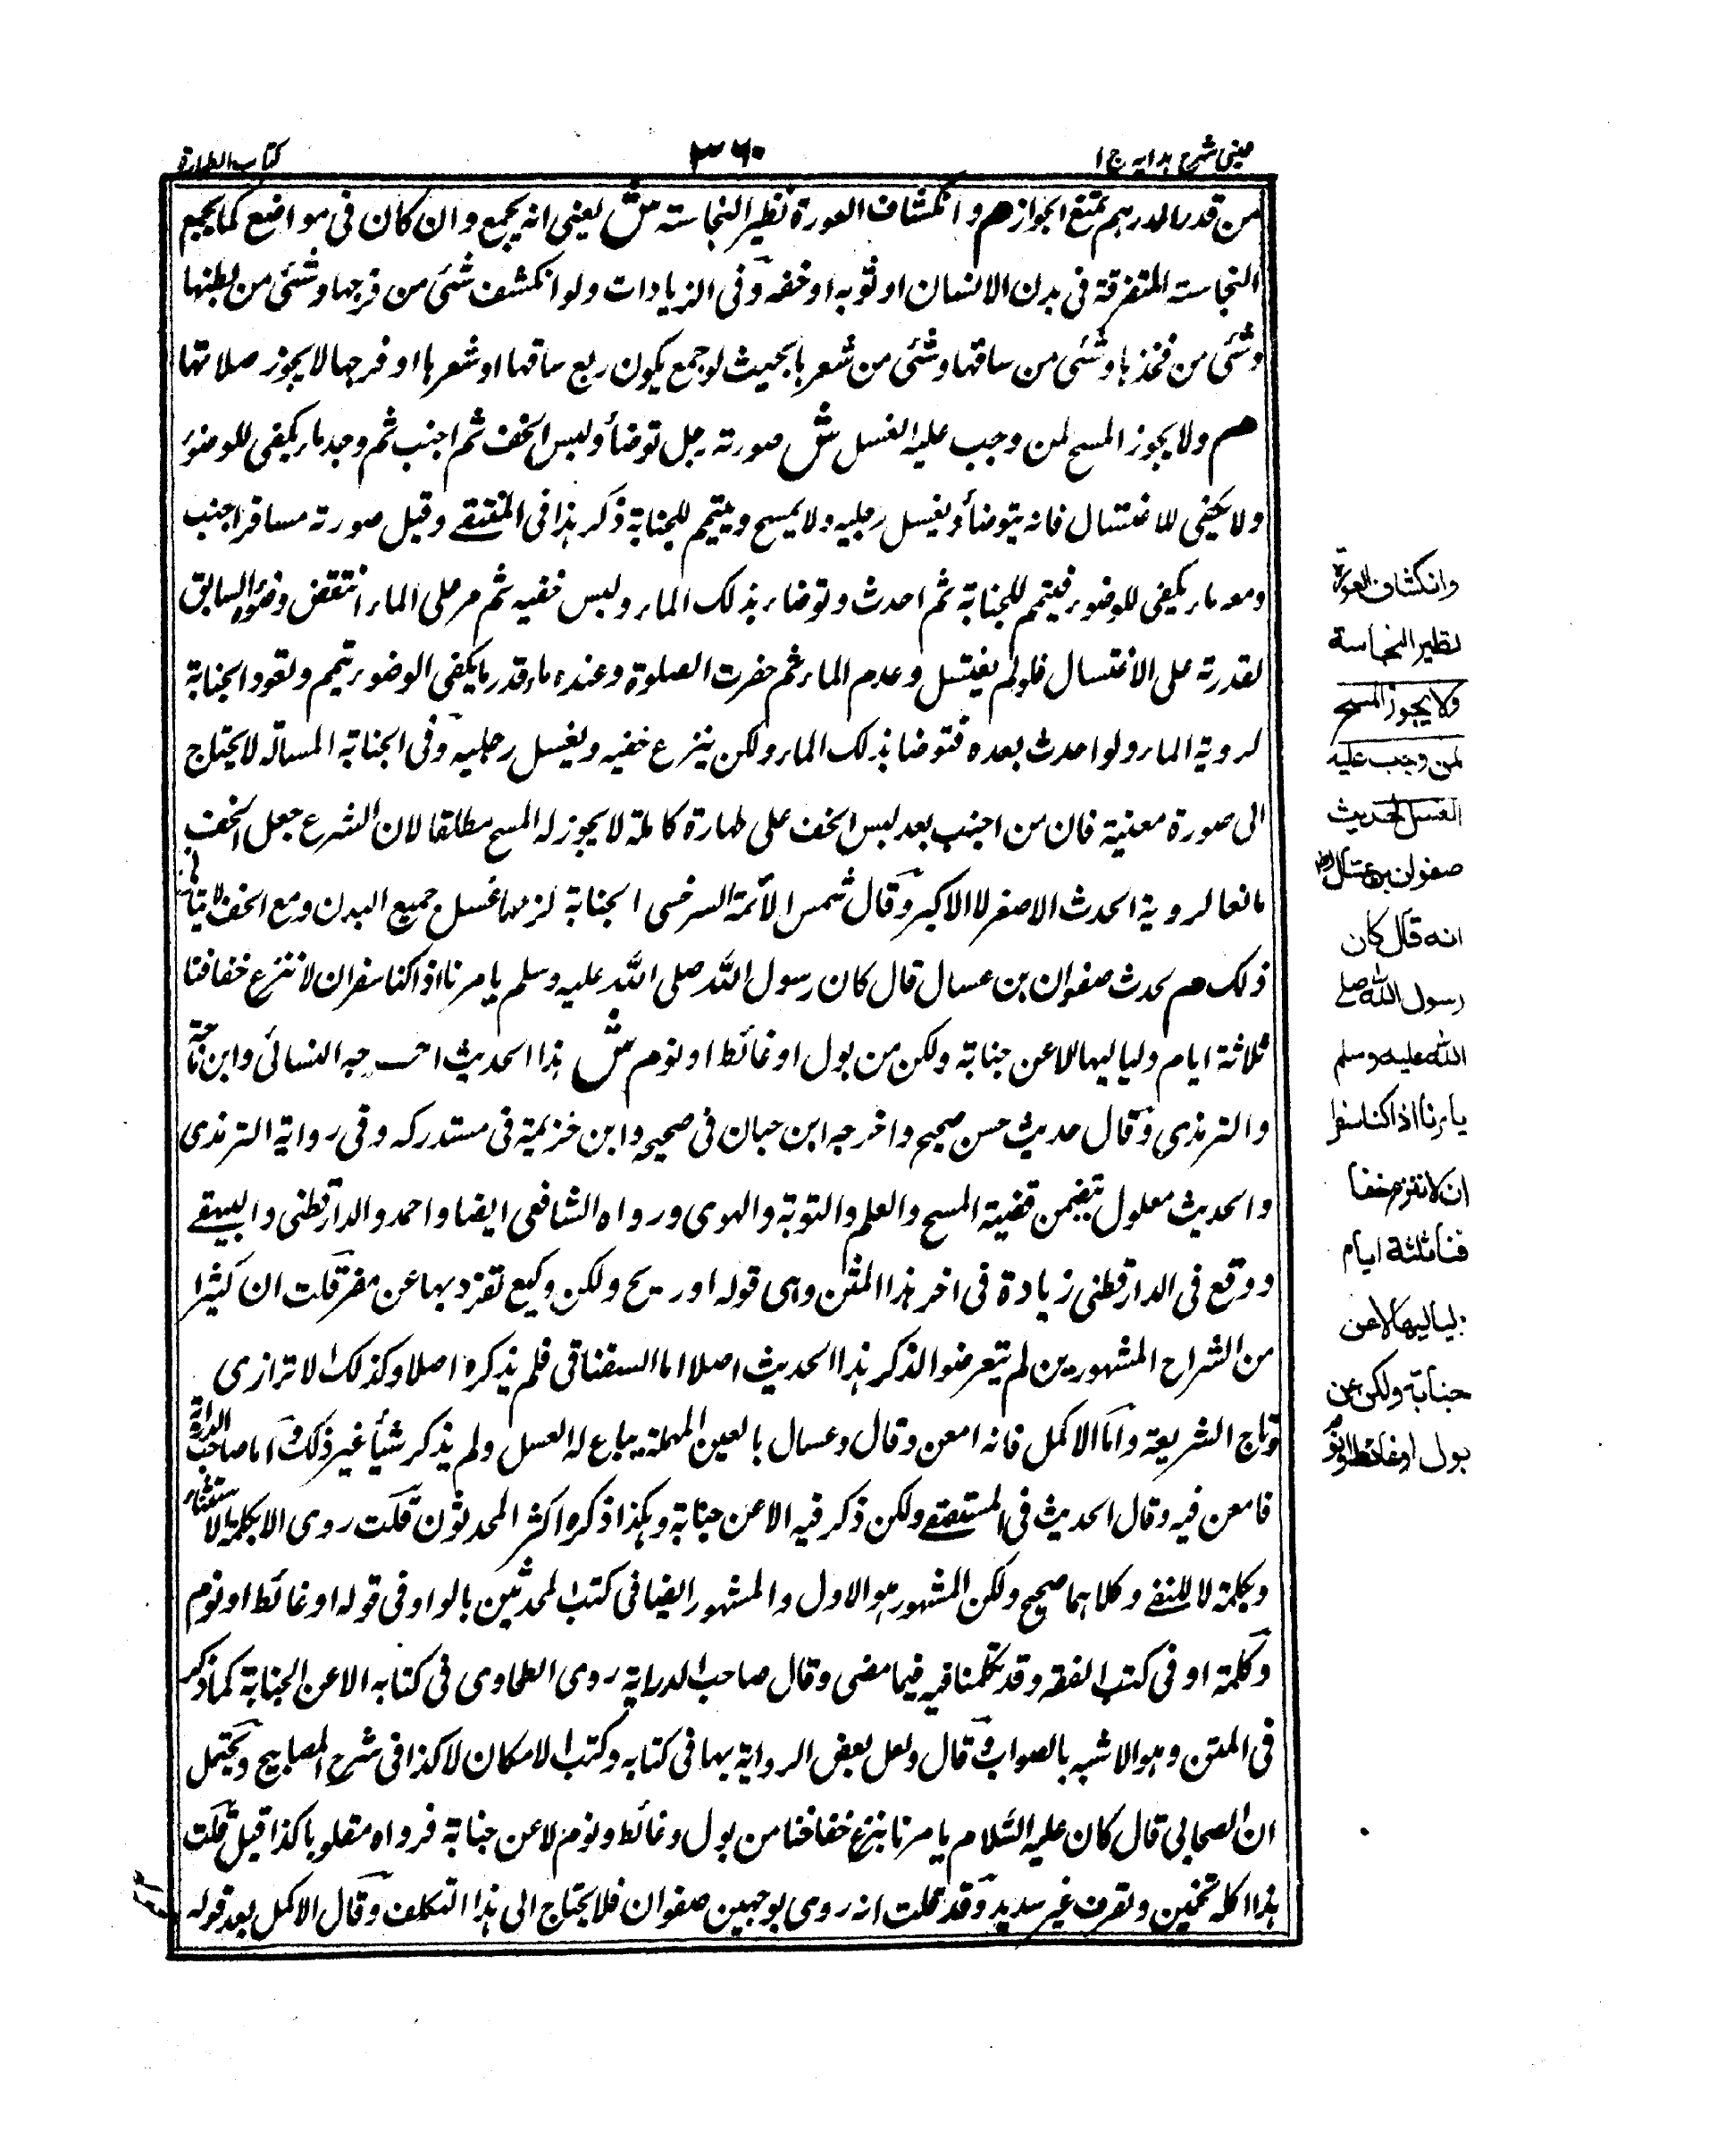 عینی شرح ہدایہ ج ا
۳۶۰
کتاب الطہارۃ
من قدر الدرہم تمنع الجواز ھم وانکشاف العورۃ نظیر النجاستہ ش یعنی انہ یجمع وان کان فی مواضع کما یجمع
النجاستہ المتفرقۃ فی بدن الانسان او ثوبہ او خفہ وفی الزیادات ولو انکشف شئی من فرجہا وشئی من بطنہا
وشئی من فخذہا وشئی من ساقہا وشئی من شعرہا بحیث لو جمع یکون ربع ساقہا او شعرہا او فرجہا لا یجوز صلاتہا
ھم ولا یجوز المسح لمن وجب علیہ الغسل ش صورتہ رجل توضأ ولبس الخف ثم اجنب ثم وجد ماء یکفی للوضوء
ولا یکفی للاغتسال فانہ یتوضأ ویغسل رجلیہ ولا یمسح ویتیمم للجنابۃ ذکر ہذا فی المنتقے وقیل صورتہ مسافر اجنب
ومعہ ماء یکفی للوضوء فیتیمم للجنابۃ ثم احدث وتوضاء بذلک الماء ولبس خفیہ ثم مر علی الماء انتقض وضوءہ السابق
لقدرتہ علی الاغتسال فلو لم یغتسل وعدم الماء ثم حضرت الصلوۃ وعندہ ماء قدر ما یکفی الوضوء تیمم ولعود الجنابۃ
لرویۃ الماء ولو احدث بعدہ فتوضا بذلک الماء ولکن ینزع خفیہ ویغسل رجلیہ وفی الجنابۃ المسالۃ لا یحتاج
الی صورۃ معنیۃ فان من اجنب بعد لبس الخف علی طہارۃ کاملۃ لا یجوز لہ المسح مطلقا لان الشرع جعل الخف
مانعا لرویۃ الحدث الاصغر لا الاکبر وقال شمس الائمۃ السرخسی الجنابۃ لزمہا غسل جمیع البدن ومع الخف لا یتأتی
ذلک ھم لحدث صفوان بن عسال قال کان رسول اللہ صلی اللہ علیہ وسلم یامرنا اذا کنا سفرا ان لا ننزع خفافنا
ثلاثۃ ایام ولیالیہا لا عن جنابۃ ولکن من بول او غائط او نوم ش ہذا الحدیث اخرجہ النسائی وابن ماجۃ
والترمذی وقال حدیث حسن صحیح واخرجہ ابن حبان فی صحیحہ وابن خزیمۃ فی مستدرکہ وفی روایۃ الترمذی
والحدیث معلول بتضمن قضیۃ المسح والعلم والتوبۃ والہوی ورواہ الشافعی ایضا واحمد والدارقطنی والبیہقے
ووقع فی الدارقطنی زیادۃ فی اخر ہذا المتن وہی قولہ او ریح ولکن وکیع تفرد بہا عن مفر قلت ان کثیرا
من الشراح المشہورین لم یتعرضوا لذکر ہذا الحدیث اصلا اما السغناقی فلم یذکرہ اصلا وکذلک الاترازی
وتاج الشریعۃ واما الاکمل فانہ امعن وقال وعسال بالعین المہملۃ بیاع لہ العسل ولم یذکر شیأ غیر ذلک واما صاحب الدرایۃ
فامعن فیہ وقال الحدیث فی المستصفے ولکن ذکر فیہ الا عن جنابۃ وہکذا ذکرہ اکثر المحدثون قلت روی الا بکلمۃ الاستثناء
وبکلمۃ لا للنفے وکلاہما صحیح ولکن المشہور ہو الاول والمشہور ایضا فی کتب المحدثین بالواو فی قولہ او غائط او نوم
وکلمۃ او فی کتب الفقہ وقد تکلمنا فیہ فیما مضی وقال صاحب الدرایۃ روی الطحاوی فی کتابہ الا عن الجنابۃ کما ذکر
فی المتن وہو الاشبہ بالصواب وقال ولعل بعض الروایۃ بہا فی کتابہ وکتب الا مکان لا کذا فی شرح المصابیح ویحتمل
ان الصحابی قال کان علیہ السلام یامرنا بنزع خفافنا من بول وغائط ونوم لا عن جنابۃ فرواہ مقلوبا کذا قیل قلت
ہذا کلہ تخمین وتصرف غیر سدید وقد قلت انہ روی بوجہین صفوان فلا یحتاج الی ہذا التکلف وقال الاکمل بعد قولہ
وانکشاف العورۃ
نظیر النجاسۃ
ولا یجوز المسح
لمن وجب علیہ
الغسل لحدیث
صفوان بن عسال
انہ قال کان
رسول اللہ صلی
اللہ علیہ وسلم
یامرنا اذا کنا سفرا
ان لا ننزع خفا
فنا ثلثۃ ایام
ولیالیھا لا عن
جنابۃ ولکن عن
بول او غائط او نوم